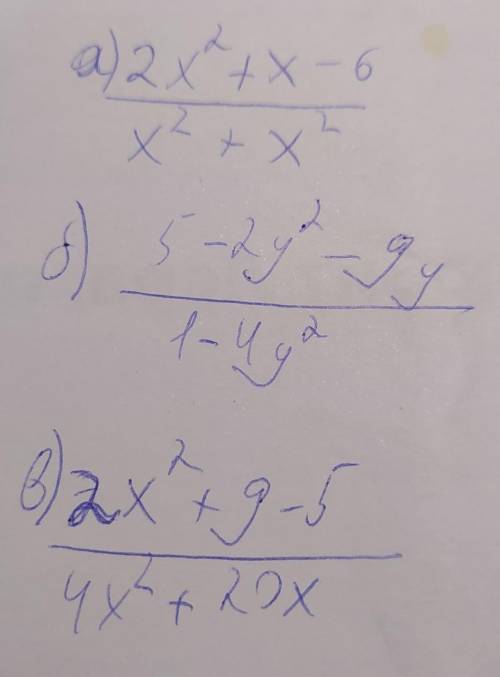 а) 2x² + x - 6
x² + x²
б) 5 - 2y² - 9y
1 - 4y²
в) 2x² + 9 - 5
4x² + 20x